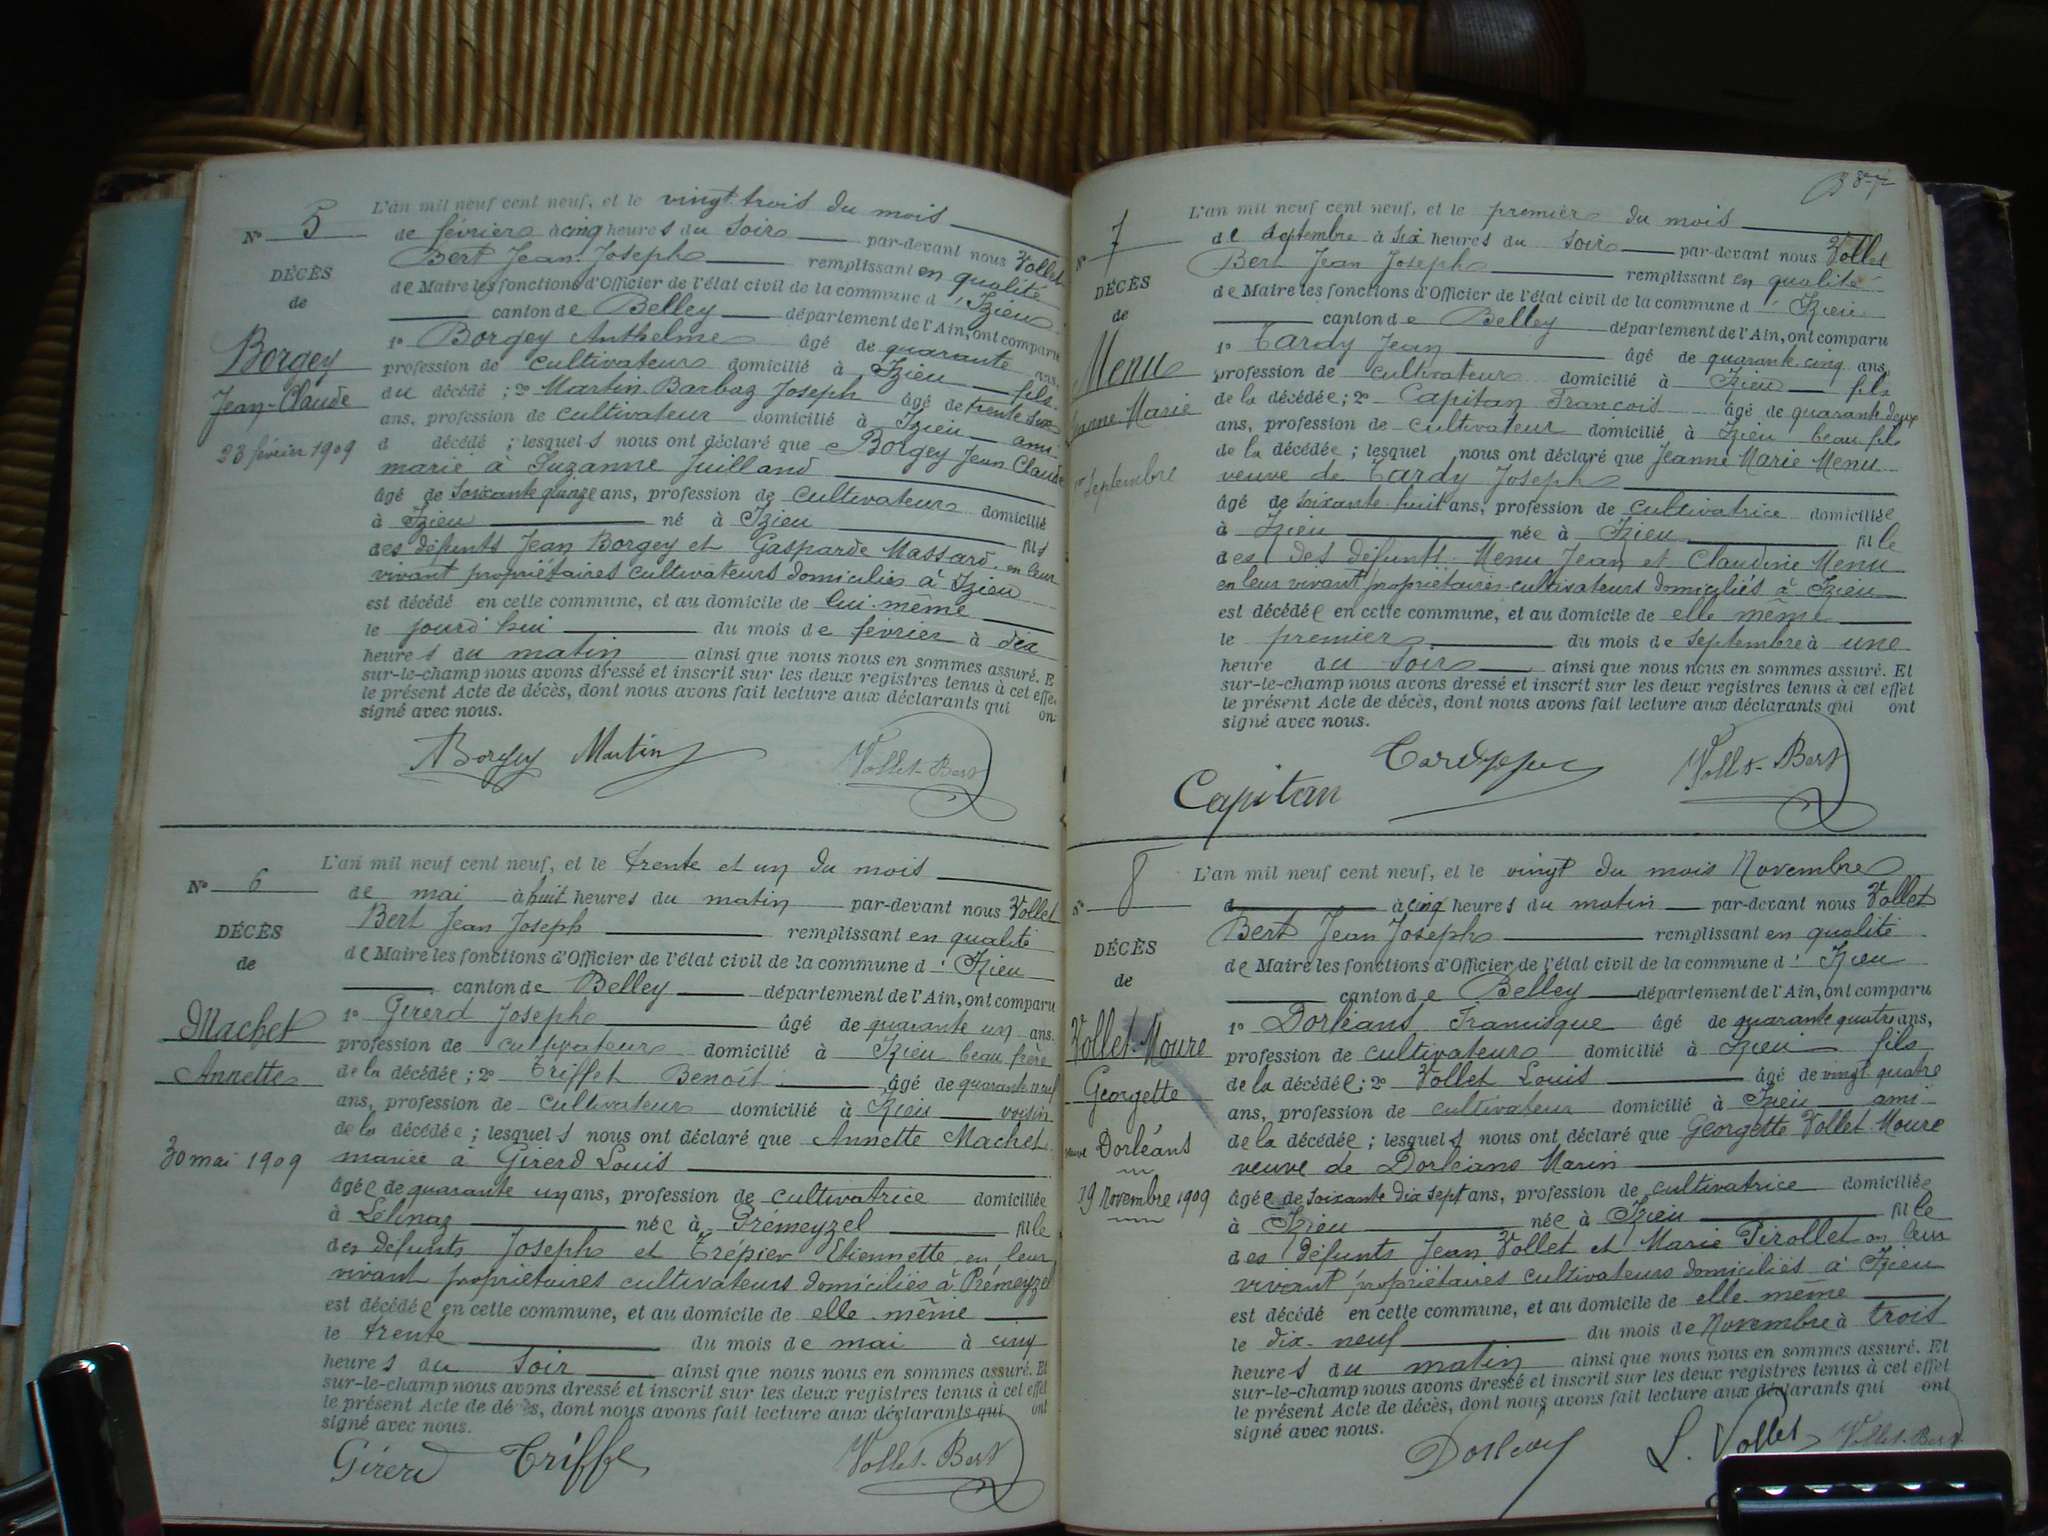 N° 5
DÉCÈS
de
Borgey
Jean-Claude
23 février 1909
L'an mil neuf cent neuf, et le vingt trois du mois
de février à cinq heures du soir par-devant nous Vollet
Bert Jean Joseph remplissant en qualité
de Maire les fonctions d'Officier de l'état civil de la commune d'Izieu
canton de Belley département de l'Ain, ont comparu
1° Borgey Anthelme âgé de quarante ans,
profession de cultivateur domicilié à Izieu fils
du décédé ; 2° Martin Barbaz Joseph âgé de trente six
ans, profession de cultivateur domicilié à Izieu ami
d décédé ; lesquels nous ont déclaré que Borgey Jean Claude
marié à Suzanne Juilland
âgé de soixante quinze ans, profession de cultivateur domicilié
à Izieu né à Izieu fils
des défunts Jean Borgey et Gasparde Massard en leur
vivant propriétaires cultivateurs domiciliés à Izieu
est décédé en cette commune, et au domicile de lui-même
le jourd'hui du mois de février à dix
heures du matin ainsi que nous nous en sommes assuré. E
sur-le-champ nous avons dressé et inscrit sur les deux registres tenus à cet effe
le présent Acte de décès, dont nous avons fait lecture aux déclarants qui on
signé avec nous.
Borgey Martin Vollet-Bert
N° 6
DÉCÈS
de
Machet
Annette
30 mai 1909
L'an mil neuf cent neuf, et le trente et un du mois
de mai à huit heures du matin par-devant nous Vollet
Bert Jean Joseph remplissant en qualité
de Maire les fonctions d'Officier de l'état civil de la commune d'Izieu
canton de Belley département de l'Ain, ont comparu
1° Girerd Joseph âgé de quarante un ans,
profession de cultivateur domicilié à Izieu beau frère
de la décédée ; 2° Triffet Benoît âgé de quarante neuf
ans, profession de cultivateur domicilié à Izieu voisin
de la décédée ; lesquels nous ont déclaré que Annette Machet
mariée à Girerd Louis
âgée de quarante un ans, profession de cultivatrice domiciliée
à Lélinaz née à Prémeyzel fille
des défunts Joseph et Trépier Etiennette en leur
vivant propriétaires cultivateurs domiciliés à Prémeyzel
est décédée en cette commune, et au domicile de elle-même
le trente du mois de mai à cinq
heures du soir ainsi que nous nous en sommes assuré. Et
sur-le-champ nous avons dressé et inscrit sur les deux registres tenus à cet effet
le présent Acte de dé s, dont nous avons fait lecture aux déclarants qui ont
signé avec nous.
Girerd Triffe Vollet-Bert
N° 7
DÉCÈS
de
Menu
Jeanne Marie
1er Septembre
L'an mil neuf cent neuf, et le premier du mois
de septembre à six heures du soir par-devant nous Vollet
Bert Jean Joseph remplissant en qualité
de Maire les fonctions d'Officier de l'état civil de la commune d'Izieu
canton de Belley département de l'Ain, ont comparu
1° Tardy Jean âgé de quarante-cinq ans,
profession de cultivateur domicilié à Izieu fils
de la décédée ; 2° Capitan François âgé de quarante deux
ans, profession de cultivateur domicilié à Izieu beau fils
de la décédée ; lesquel nous ont déclaré que Jeanne Marie Menu
veuve de Tardy Joseph
âgé de soixante-huit ans, profession de cultivatrice domiciliée
à Izieu née à Izieu fille
des des défunts Menu Jean et Claudine Menu
en leur vivant propriétaires-cultivateurs domiciliés à Izieu
est décédée en cette commune, et au domicile de elle même
le premier du mois de septembre à une
heure du soir ainsi que nous nous en sommes assuré. Et
sur-le-champ nous avons dressé et inscrit sur les deux registres tenus à cet effet
le présent Acte de décès, dont nous avons fait lecture aux déclarants qui ont
signé avec nous.
Capitan Vollet-Bert
N° 8
DÉCÈS
de
Vollet-Moure
Georgette
veuve Dorléans
19 novembre 1909
L'an mil neuf cent neuf, et le vingt du mois Novembre
d à cinq heures du matin par-devant nous Vollet
Bert Jean Joseph remplissant en qualité
de Maire les fonctions d'Officier de l'état civil de la commune d'Izieu
canton de Belley département de l'Ain, ont comparu
1° Dorléans Francisque âgé de quarante quatre ans,
profession de cultivateur domicilié à Izieu fils
de la décédée ; 2° Vollet Louis âgé de vingt quatre
ans, profession de cultivateur domicilié à Izieu ami
de la décédée ; lesquels nous ont déclaré que Georgette Vollet Moure
veuve de Dorléans Marin
âgée de soixante dix sept ans, profession de cultivatrice domiciliée
à Izieu née à Izieu fille
des défunts Jean Vollet et Marie Pirollet en leur
vivant propriétaires cultivateurs domiciliés à Izieu
est décédé en cette commune, et au domicile de elle-même
le dix-neuf du mois de Novembre à trois
heures du matin ainsi que nous nous en sommes assuré. Et
sur-le-champ nous avons dressé et inscrit sur les deux registres tenus à cet effet
le présent Acte de décès, dont nous avons fait lecture aux déclarants qui ont
signé avec nous.
L. Vollet Vollet-Bert